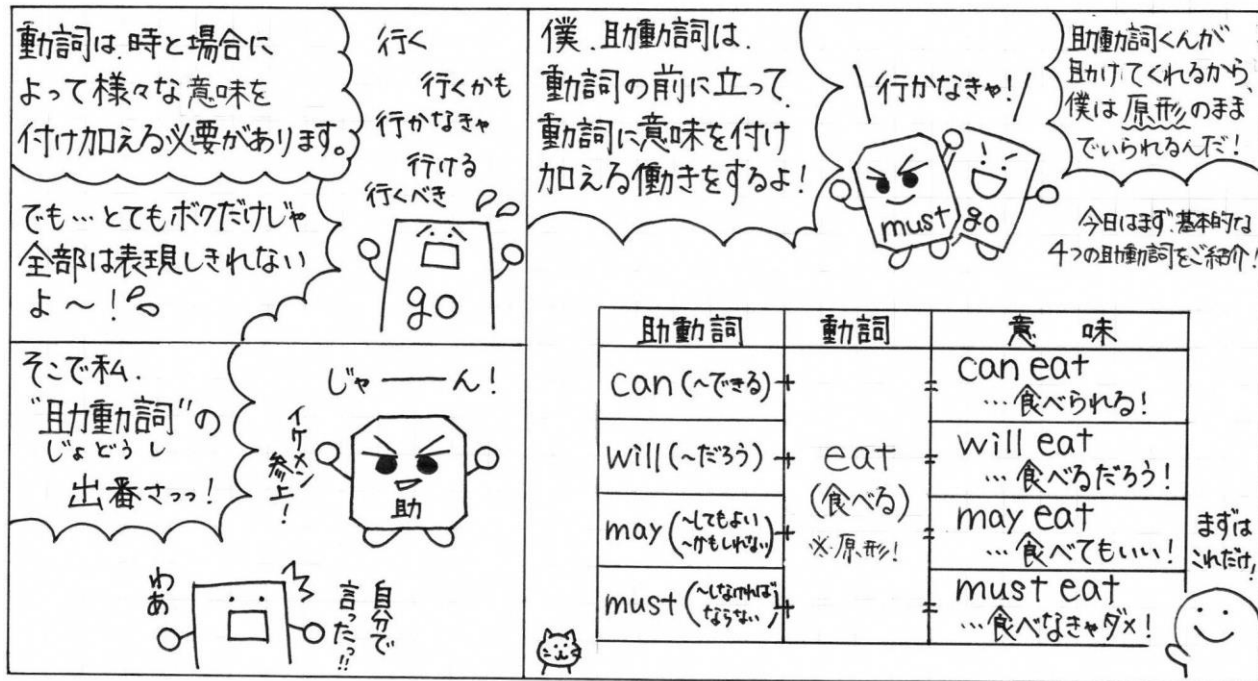 動詞は、時と場合に
よって様々な意味を
付け加える必要があります。
行く
行くかも
行かなきゃ
行ける
行くべき
でも…とてもボクだけじゃ
全部は表現しきれない
よ〜!
go
そこで私、
"助動詞"の
じょどうし
出番さっっ!
じゃーーん!
イケメン
参上!
助
わあ
自分で
言ったっ!!
僕、助動詞は、
動詞の前に立って、
動詞に意味を付け
加える働きをするよ!
行かなきゃ!
must
go
助動詞くんが
助けてくれるから、
僕は原形のまま
でいられるんだ!
今日はまず、基本的な
4つの助動詞をご紹介!
助動詞 動詞 意味
can (〜できる) + = can eat
…食べられる!
will (〜だろう) + = will eat
…食べるだろう!
eat
(食べる)
※原形!
may (〜してもよい
〜かもしれない) + = may eat
…食べてもいい!
must (〜しなければ
ならない) + = must eat
…食べなきゃダメ!
まずは
これだけ!